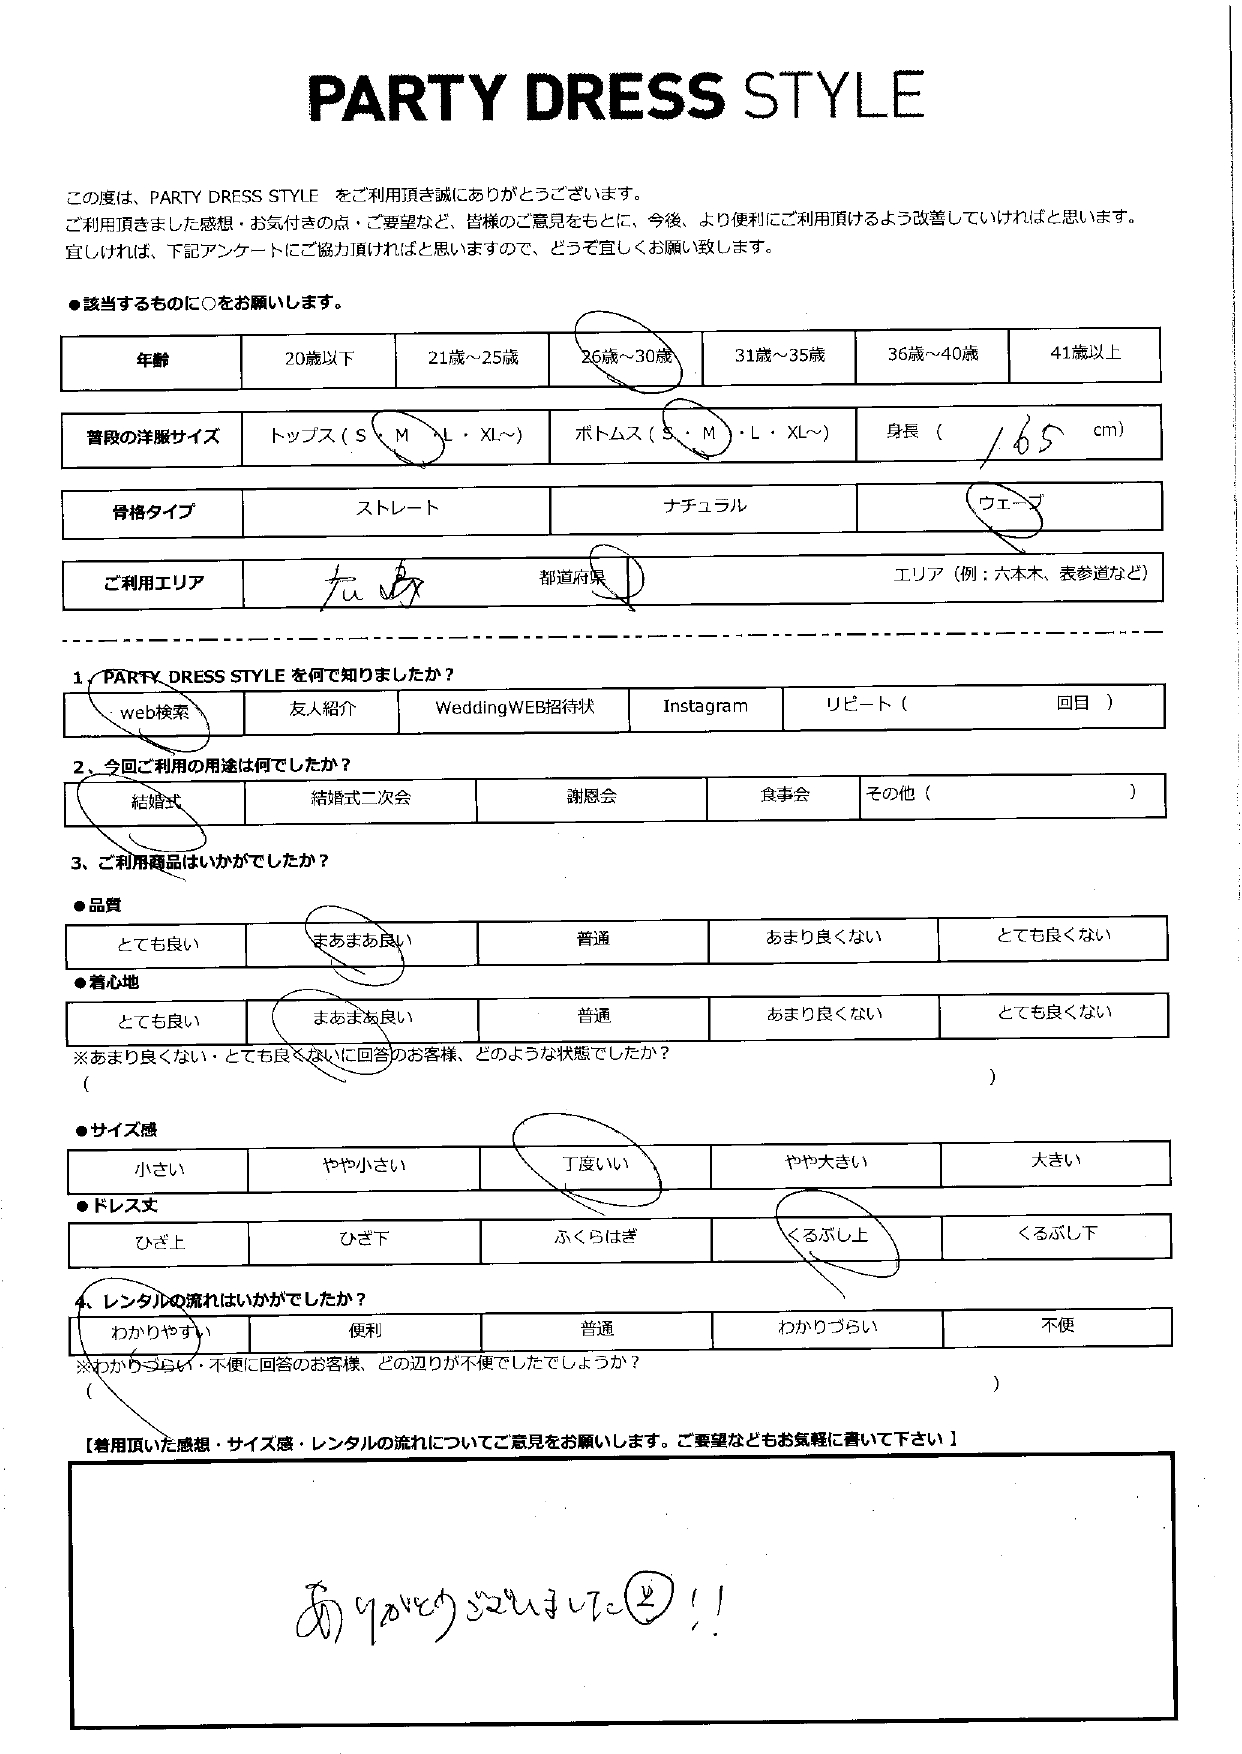 PARTY DRESS STYLE
この度は、PARTY DRESS STYLE をご利用頂き誠にありがとうございます。
ご利用頂きました感想・お気付きの点・ご要望など、皆様のご意見をもとに、今後、より便利にご利用頂けるよう改善していければと思います。
宜しければ、下記アンケートにご協力頂ければと思いますので、どうぞ宜しくお願い致します。
●該当するものに○をお願いします。
年齢 20歳以下 21歳～25歳 26歳～30歳 31歳～35歳 36歳～40歳 41歳以上
普段の洋服サイズ トップス ( S ・ M ・ L ・ XL～) ボトムス ( S ・ M ・ L ・ XL～) 身長 ( 165 cm)
骨格タイプ ストレート ナチュラル ウェーブ
ご利用エリア 都道府県 エリア（例：六本木、表参道など）
1、PARTY DRESS STYLE を何で知りましたか？
web検索 友人紹介 WeddingWEB招待状 Instagram リピート ( 回目 )
2、今回ご利用の用途は何でしたか？
結婚式 結婚式二次会 謝恩会 食事会 その他 ( )
3、ご利用商品はいかがでしたか？
●品質
とても良い まあまあ良い 普通 あまり良くない とても良くない
●着心地
とても良い まあまあ良い 普通 あまり良くない とても良くない
※あまり良くない・とても良くないに回答のお客様、どのような状態でしたか？
( )
●サイズ感
小さい やや小さい 丁度いい やや大きい 大きい
●ドレス丈
ひざ上 ひざ下 ふくらはぎ くるぶし上 くるぶし下
4、レンタルの流れはいかがでしたか？
わかりやすい 便利 普通 わかりづらい 不便
※わかりづらい・不便に回答のお客様、どの辺りが不便でしたでしょうか？
( )
【着用頂いた感想・サイズ感・レンタルの流れについてご意見をお願いします。ご要望などもお気軽に書いて下さい】
ありがとうございました!!